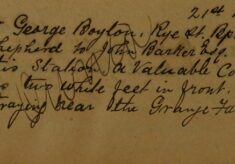 21st
George Boyton, Rye St. Bps
Shepherd to John Barker Esq.
is Station a Valuable Co
s two white feet in front.
raying near the Grange Fa